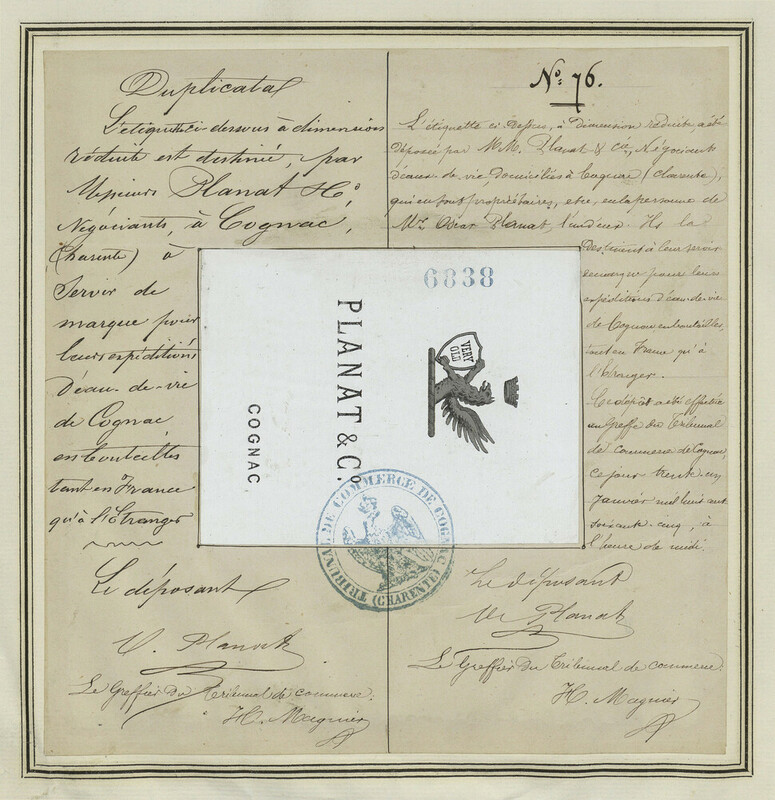 Duplicata
L'étiquette ci-dessous à dimension
réduite est destinée, par
Messieurs Planat & Cie,
Négociants, à Cognac,
(Charente) à
Servir de
marque pour
leurs expéditions
D'eau-de-vie
de Cognac
en bouteilles
tant en France
qu'à l'Etranger
Le déposant
V. Planat
Le Greffier Du Tribunal de commerce.
H. Magnier
No. 76.
L'étiquette ci-dessus, à dimension réduite, a été
déposée par MM. Planat & Cie, Négociants
d'eaux-de-vie, domiciliés à Cognac (Charente),
qui en sont propriétaires, etre, en la personne de
Mr. Oscar Planat, l'un d'eux. Ils la
Destinent à leur servir
de marque pour leurs
expéditions D'eau-de-vie
de Cognac en bouteilles,
tant en France qu'à
l'étranger.
Ce dépôt a été effectué
au Greffe du Tribunal
de commerce de Cognac,
ce jour trente un
Janvier mil huit cent
soixante-cinq, à
l'heure de midi.
Le déposant
Planat
Le Greffier Du Tribunal de commerce.
H. Magnier
6838
VERY
OLD
PLANAT & Co.
COGNAC.
TRIBUNAL DE COMMERCE DE COGNAC
(CHARENTE)